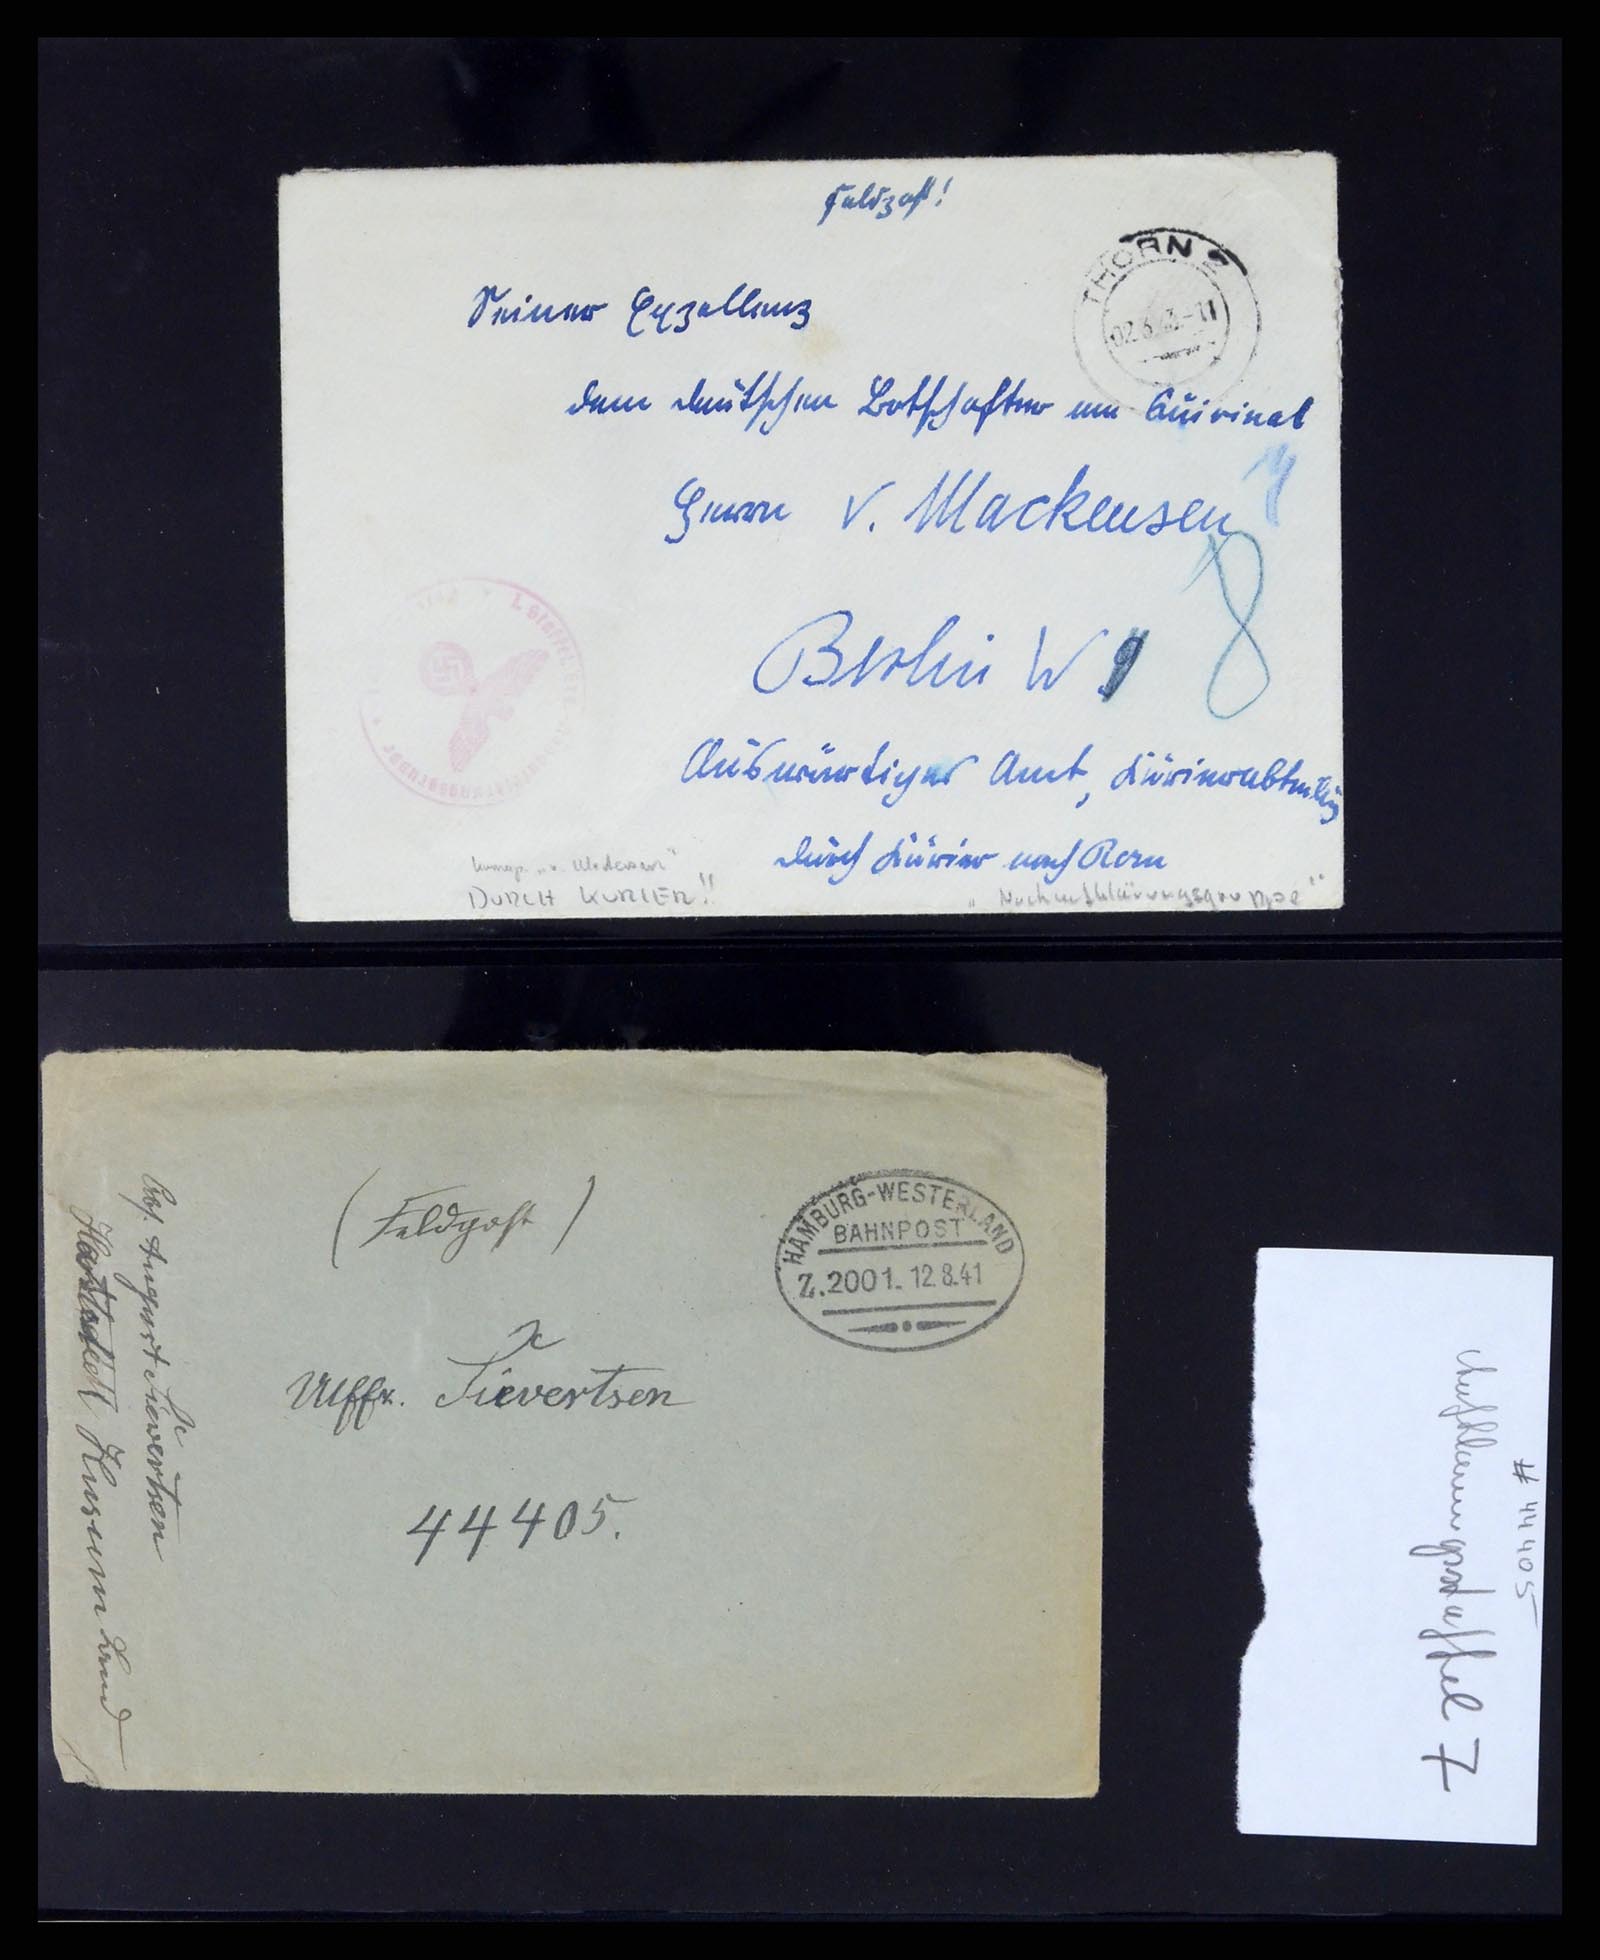 Feldpost!
THORN 2
02.6.43.-11
Seiner Exzellenz
dem deutschen Botschafter am Quirinal
Herrn v. Mackensen
8
Berlin W 9
Auswärtiges Amt, Kürierabteilung
durch Kürier nach Rom
"v. Mackensen"
DURCH KURIER!!
"Nachaufklärungsgruppe"
(Feldpost)
HAMBURG-WESTERLAND
BAHNPOST
Z.2001. 12.8.41
Uffz. Sievertsen
44405.
Abs. August Sievertsen
Husum Land
# 44405
Aufklärungsstaffel 7